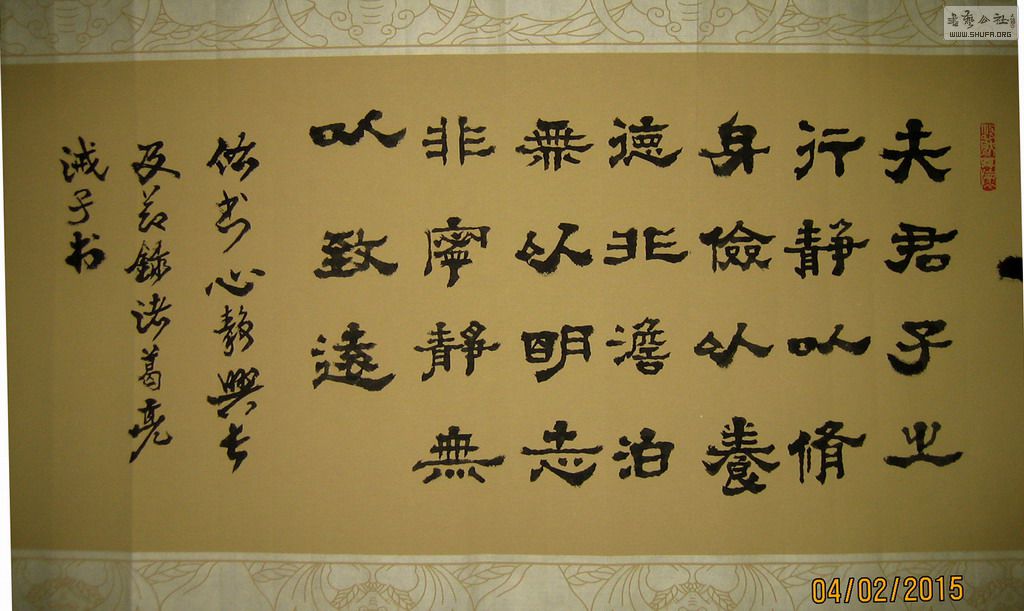 夫君子之
行静以脩
身儉以養
德非澹泊
無以明志
非寧静無
以致遠
书心静興
及錄诸葛亮
诫子书
書藝公社
WWW.SHUFA.ORG
04/02/2015